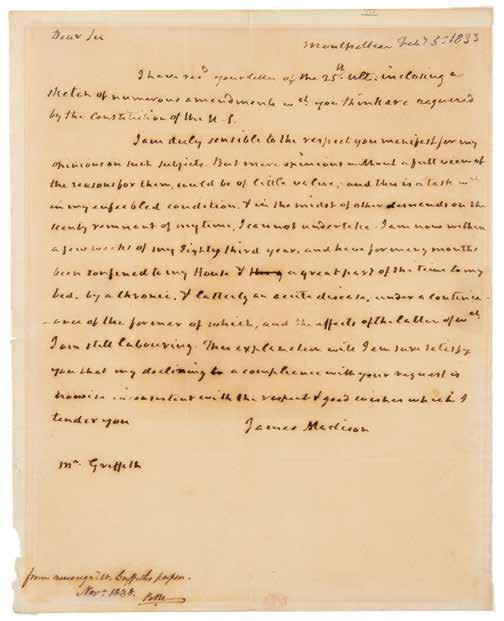 Dear Sir
Montpellier Feby 5. 1833
I have recd your letter of the 25th Ult: inclosing a
sketch of numerous amendments wch you think are required
by the Constitution of the U. S.
I am duly sensible to the respect you manifest for my
opinion on such subjects. But mere opinions without a full view of
the reasons for them, would be of little value, and this is a task wch
in my enfeebled condition, & in the midst of other demands on the
scanty remnant of my time, I cannot undertake. I am now within
a few weeks of my Eighty third year, and have for many months
been confined to my House & a great part of the time to my
bed, by a chronic, & latterly an acute disease, under a continu-
-ance of the former of which, and the effects of the latter of wch
I am still labouring. This explanation will I am sure satisfy
you that my declining a compliance with your request is
nowise inconsistent with the respect & good wishes which I
tender you
James Madison
Mr Griffith
from amongst W. Griffith's papers.
Novr 1838.